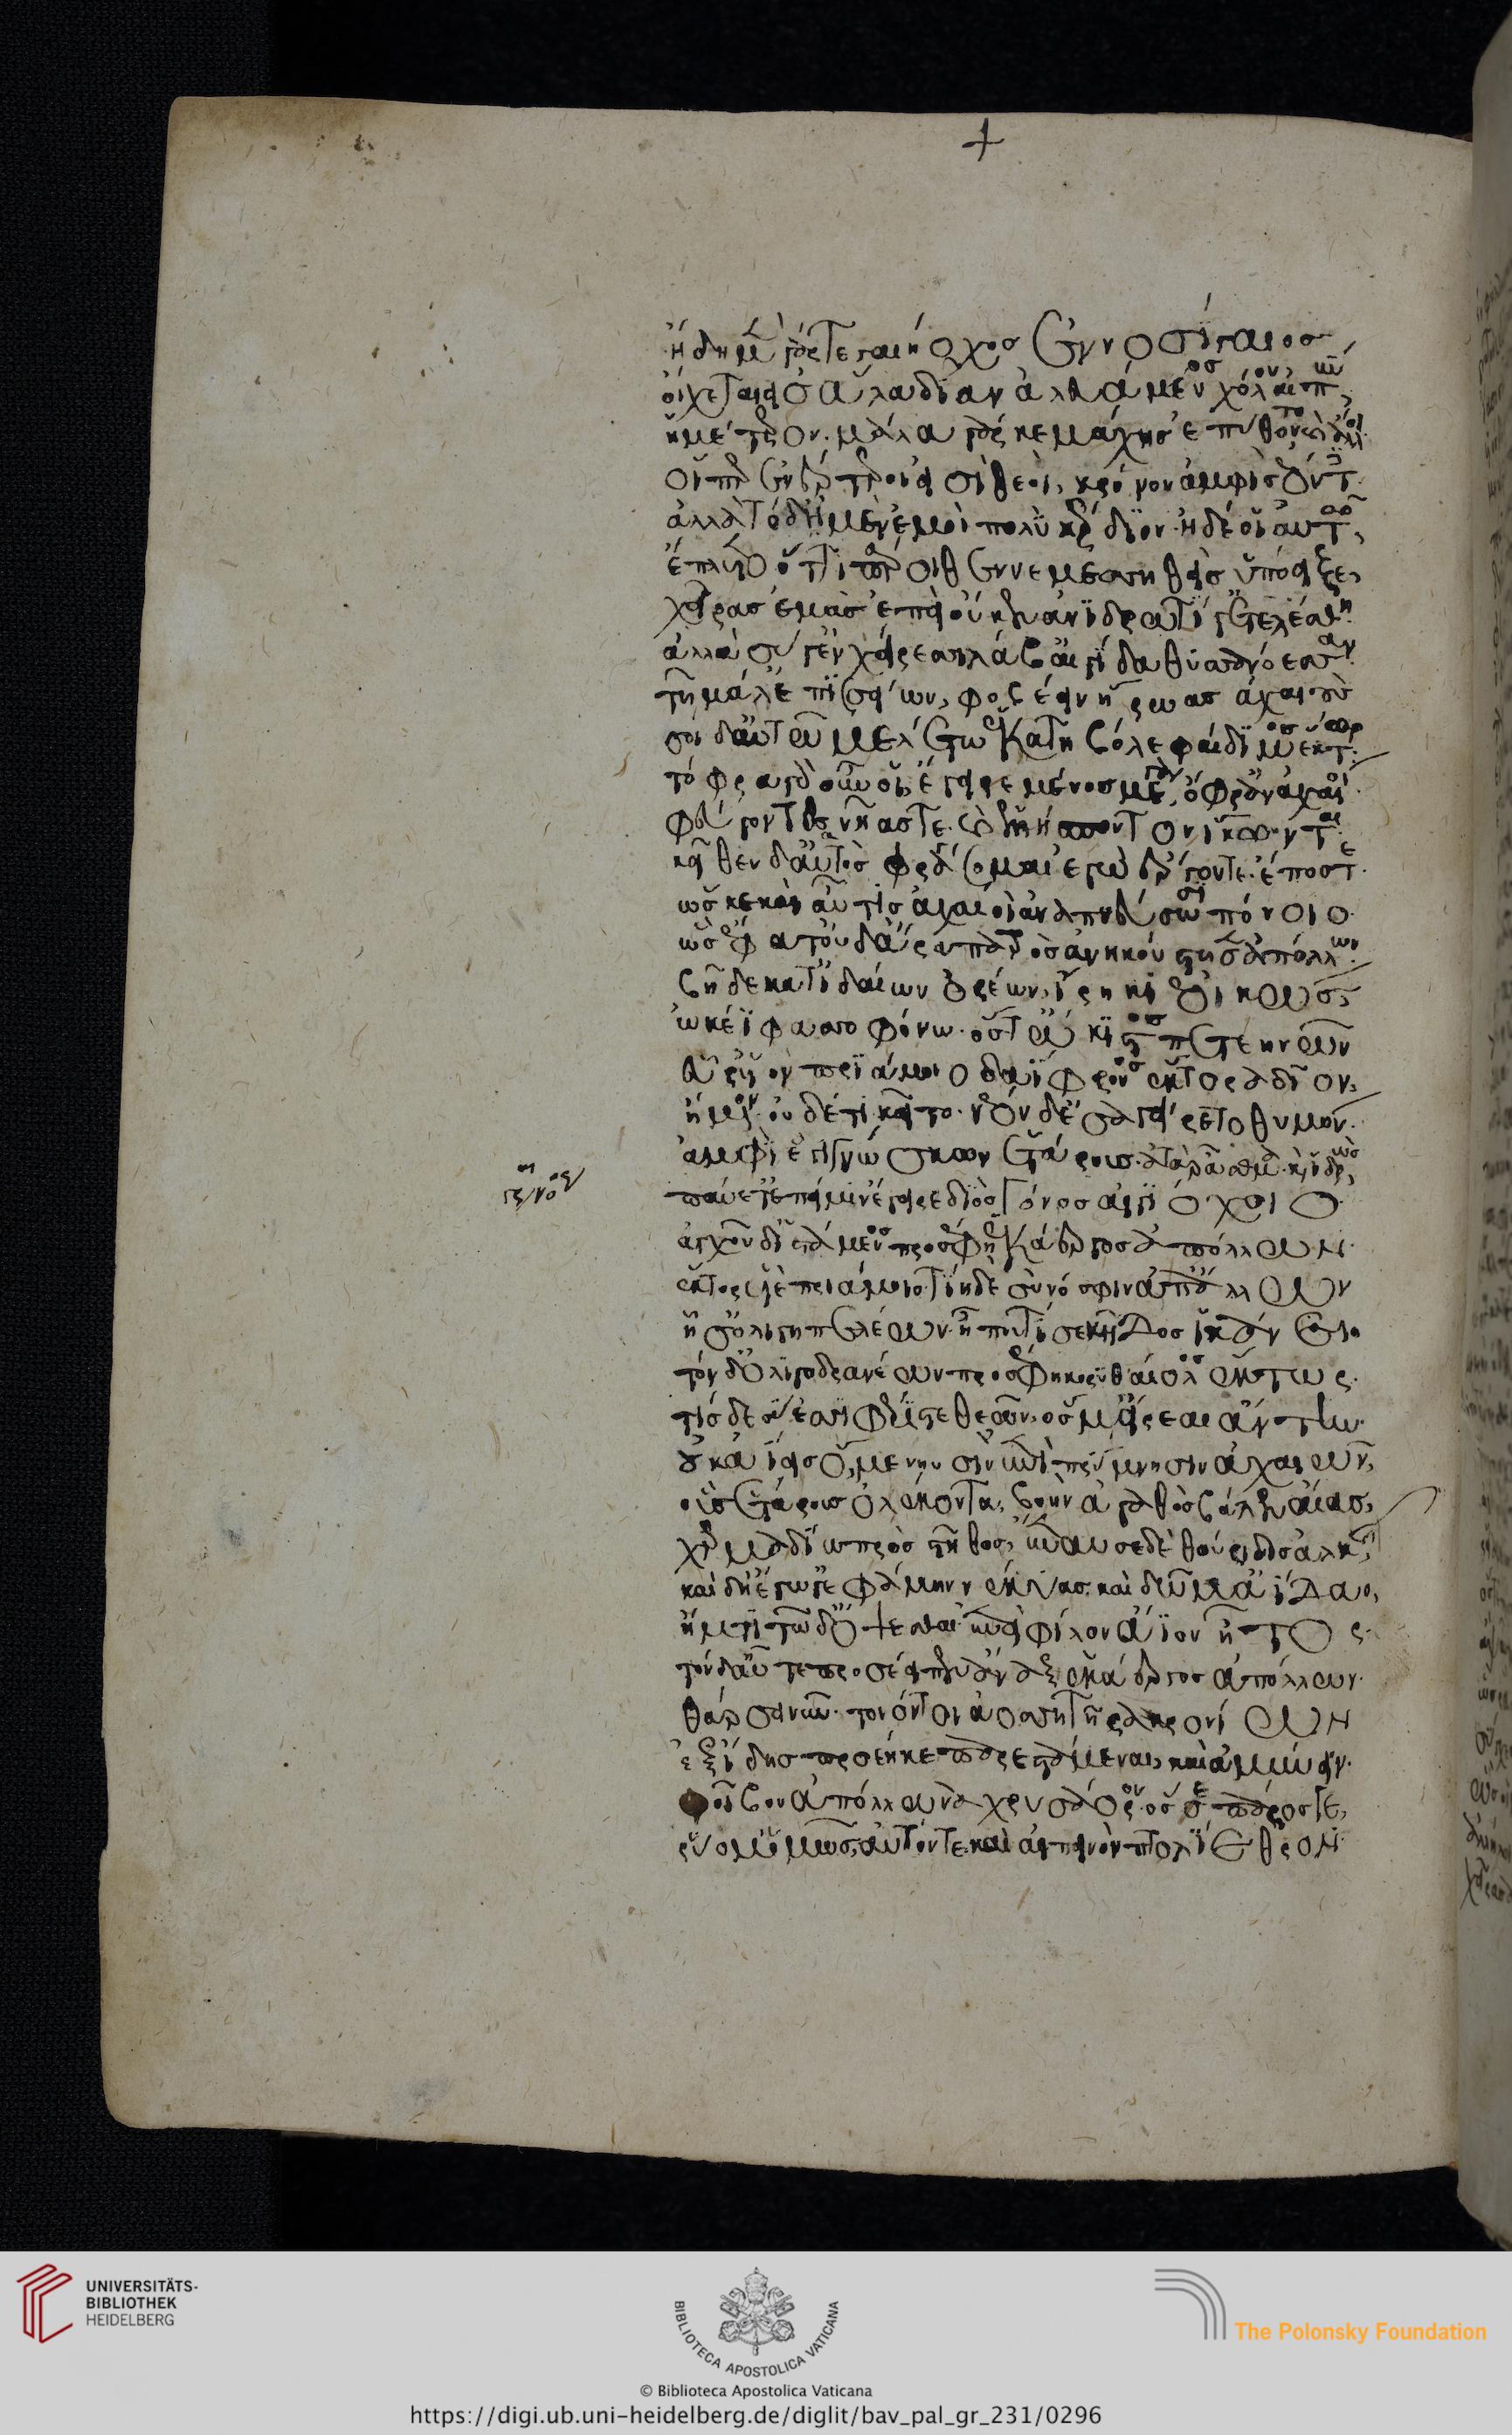 ἤδη μὲν γάρ τε γαιήοχος ἐννοσίγαιος
οἴχεται εἰς ἅλα δῖαν ἀλευάμενος χόλον αἰπὺν
ἡμέτερον· μάλα γάρ κε μάχης ἐπύθοντο καὶ ἄλλοι
οἵ περ ἐνέρτεροι εἰσὶ θεοὶ, κρόνον ἀμφὶς ἐόντες·
ἀλλὰ τόδ' ἠμὲν ἐμοὶ πολὺ κέρδιον ἠδέ οἱ αὐτῷ,
ἔπλετο ὅττι πάροιθε νεμεσσηθεὶς ὑπόειξε,
χεῖρας ἐμὰς ἐπεὶ οὔ κεν ἀνιδρωτί γ' ἐτελέσθη·
ἀλλὰ σύ γ' ἐν χείρεσσι λάβ' αἰγίδα θυσσανόεσσαν·
τῇ μάλ' ἐπισσείων, φοβέειν ἥρωας ἀχαιούς
σοὶ δ' αὐτῷ μελέτω ἑκατηβόλε φαίδιμος ἕκτωρ·
τόφρα γὰρ οὖν οἱ ἔγειρε μένος μέγα, ὄφρ' ἂν ἀχαιοὶ·
φεύγοντες νῆας τε καὶ ἑλλήσποντον ἵκωνται·
κεῖθεν δ' αὐτὸς φράσομαι ἐγὼ ἔργον τε ἔπος τε·
ὥς κε καὶ αὖτις ἀχαιοὶ ἀναπνεύσωσι πόνοιο·
ὣς ἔφατ' οὐδ' ἄρα πατρὸς ἀνηκούστησ' ἀπόλλων·
βῆ δὲ κατ' ἰδαίων ὀρέων, ἴρηκι ἐοικὼς,
ὠκέϊ φασσοφόνω· ὅς τ' ὤκιστος πετεηνῶν
εὗρ' υἱὸν πριάμοιο δαΐφρονος ἕκτορα δῖον,
ἥμενον· οὐδέτι κεῖτο· νέον δ' ἐσαγείρετο θυμόν·
ἀμφὶ ἓ γιγνώσκων ἑτάρους· ἀτὰρ ἆσθμα καὶ ἱδρὼς,
παύετ' ἐπεί μιν ἔγειρε διὸς νόος αἰγιόχοιο·
ἀγχοῦ δ' ἱστάμενος προσέφη ἑκάεργος ἀπόλλων·
ἕκτορ υἱὲ πριάμοιο· τίη δὲ σὺ νόσφιν ἀπ' ἄλλων
ἧσ' ὀλιγηπελέων· ἦ πού τί σε κῆδος ἱκάνει
τὸν δ' ὀλιγοδρανέων προσέφη κορυθαίολος ἕκτωρ·
τίς δὲ σύ ἐσσι φέριστε θεῶν, ὅς μ' εἴρεαι ἄντην·
οὐκ ἀΐεις ὅ, με νηυσὶν ἐπὶ πρύμνῃσιν ἀχαιῶν,
οὓς ἑτάρους ὀλέκοντα, βοὴν ἀγαθὸς βάλεν αἴας,
χερμαδίω πρὸς στῆθος, ἔπαυσε δὲ θούριδος ἀλκῆς,
καὶ δὴ ἔγωγε φάμην νέκυας καὶ δῶμ' ἀΐδαο,
ἤματι τῶδ' ὄψεσθαι ἐπεὶ φίλον ἄϊον ἦτορ·
τὸν δ' αὖτε προσέειπεν ἄναξ ἑκάεργος ἀπόλλων·
θάρσει νῦν· τοῖόν τοι ἀοσσητῆρα κρονίων
ἐξ ἴδης προέηκε παρεστάμεναι καὶ ἀμύνειν·
φοῖβον ἀπόλλωνα χρυσάορον· ὅς σε πάρος τε,
ῥύομ' ὁμῶς, αὐτόν τε καὶ αἰπεινὸν πτολίεθρον
UNIVERSITÄTS-
BIBLIOTHEK
HEIDELBERG
BIBLIOTECA APOSTOLICA VATICANA
The Polonsky Foundation
© Biblioteca Apostolica Vaticana
https://digi.ub.uni-heidelberg.de/diglit/bav_pal_gr_231/0296